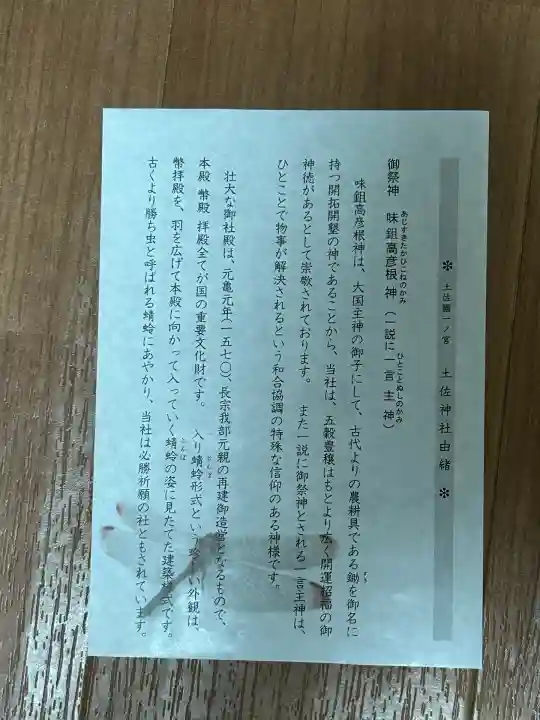 ✽ 土佐國一ノ宮 土佐神社由緒 ✽
御祭神 味鉏高彦根神(一説に一言主神)
あじすきたかひこねのかみ
ひとことぬしのかみ
味鉏高彦根神は、大国主神の御子にして、古代よりの農耕具である鋤を御名に
すき
持つ開拓開墾の神であることから、当社は、五穀豊穣はもとより広く開運招福の御
神徳があるとして崇敬されております。 また一説に御祭神とされる一言主神は、
ひとことで物事が解決されるという和合協調の特殊な信仰のある神様です。
壮大な御社殿は、元亀元年(一五七〇)長宗我部元親の再建御造営となるもので、
本殿 幣殿 拝殿全てが国の重要文化財です。 入り蜻蛉形式という珍しい外観は、
とんぼ
幣拝殿を、羽を広げて本殿に向かって入っていく蜻蛉の姿に見たてた建築様式です。
とんぼ
古くより勝ち虫と呼ばれる蜻蛉にあやかり、当社は必勝祈願の社ともされています。